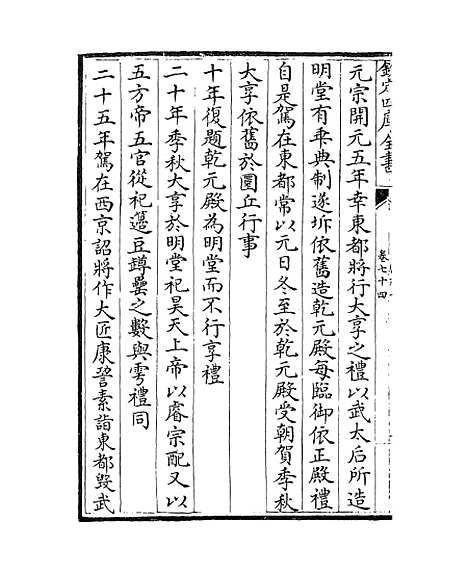 欽定四庫全書
卷七十四
元宗開元五年幸東都將行大享之禮以武太后所造
明堂有乖典制遂坼依舊造乾元殿每臨御依正殿禮
自是駕在東都常以元日冬至於乾元殿受朝賀季秋
大享依舊於圜丘行事
十年復題乾元殿為明堂而不行享禮
二十年季秋大享於明堂祀昊天上帝以睿宗配又以
五方帝五官從祀籩豆罇罍之數與雩禮同
二十五年駕在西京詔將作大匠康𧦬素詣東都毀武